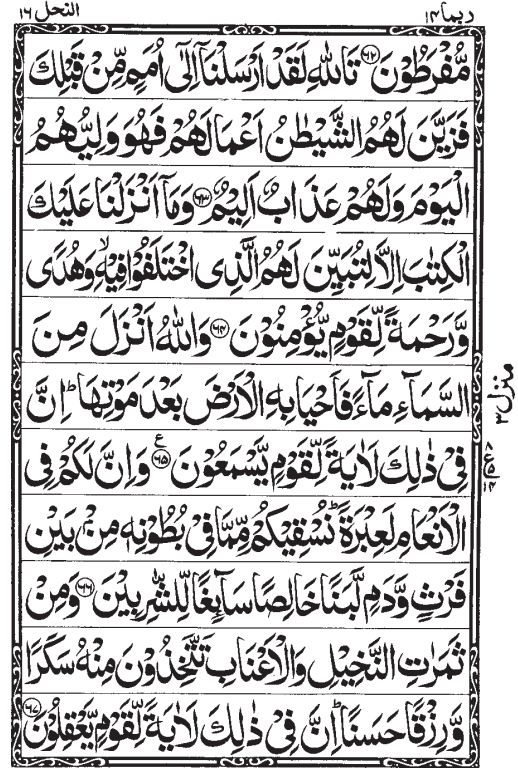 النحل ١٦
ربما ١٤
مُّفْرَطُوْنَ ﴿۶۲﴾ تَاللّٰهِ لَقَدْ اَرْسَلْنَاۤ اِلٰۤى اُمَمٍ مِّنْ قَبْلِكَ
فَزَيَّنَ لَهُمُ الشَّيْطٰنُ اَعْمَالَهُمْ فَهُوَ وَلِيُّهُمُ
الْيَوْمَ وَلَهُمْ عَذَابٌ اَلِيْمٌ ﴿۶۳﴾ وَمَاۤ اَنْزَلْنَا عَلَيْكَ
الْكِتٰبَ اِلَّا لِتُبَيِّنَ لَهُمُ الَّذِى اخْتَلَفُوْا فِيْهِ ۙ وَهُدًى
وَّرَحْمَةً لِّقَوْمٍ يُّؤْمِنُوْنَ ﴿۶۴﴾ وَاللّٰهُ اَنْزَلَ مِنَ
السَّمَآءِ مَآءً فَاَحْيَا بِهِ الْاَرْضَ بَعْدَ مَوْتِهَا ؕ اِنَّ
فِىْ ذٰلِكَ لَاٰيَةً لِّقَوْمٍ يَّسْمَعُوْنَ ﴿۶۵﴾ ع وَاِنَّ لَكُمْ فِى
الْاَنْعَامِ لَعِبْرَةً ؕ نُسْقِيْكُمْ مِّمَّا فِىْ بُطُوْنِهٖ مِنْۢ بَيْنِ
فَرْثٍ وَّدَمٍ لَّبَنًا خَالِصًا سَآئِغًا لِّلشّٰرِبِيْنَ ﴿۶۶﴾ وَمِنْ
ثَمَرٰتِ النَّخِيْلِ وَالْاَعْنَابِ تَتَّخِذُوْنَ مِنْهُ سَكَرًا
وَّرِزْقًا حَسَنًا ؕ اِنَّ فِىْ ذٰلِكَ لَاٰيَةً لِّقَوْمٍ يَّعْقِلُوْنَ ﴿۶۷﴾
منزل ۳